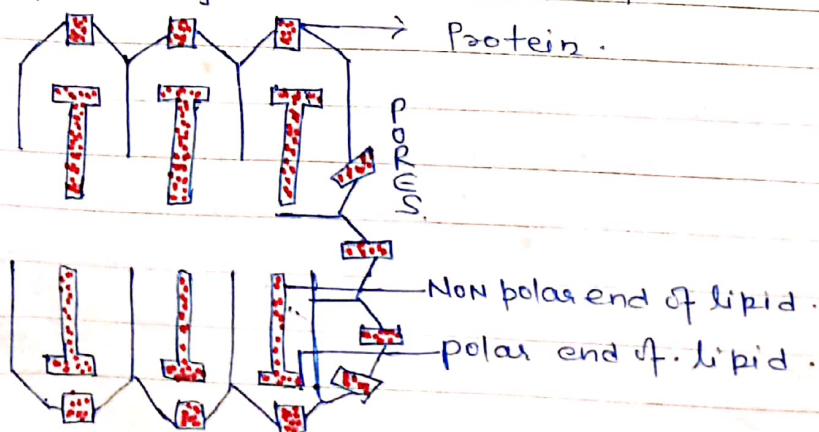 Protein.
PORES.
Non polar end of lipid.
polar end of. lipid.